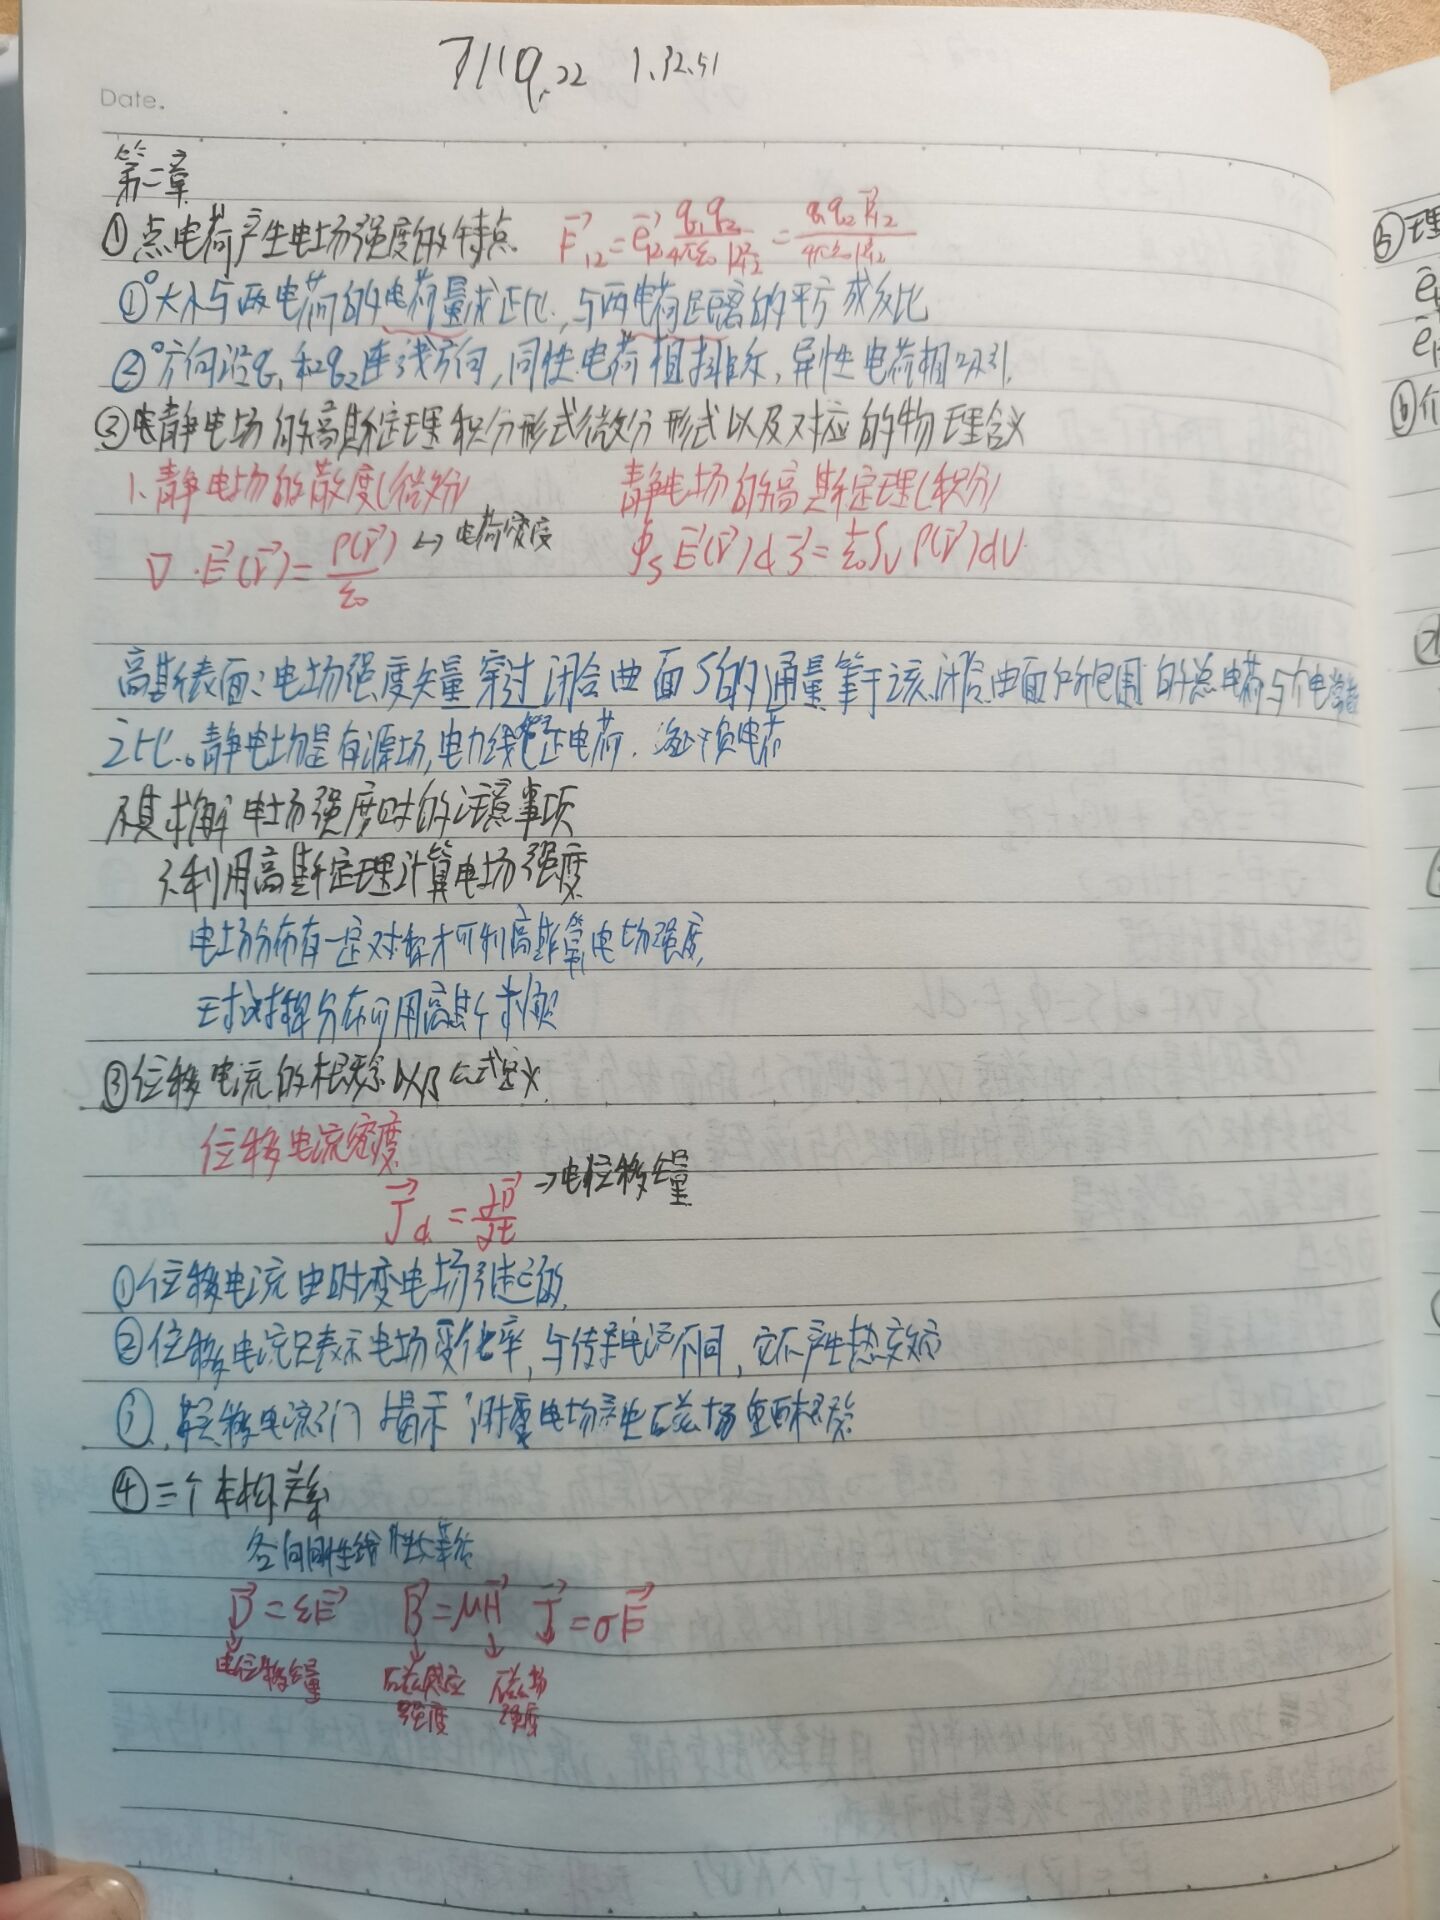 Date.
1.32.51
第二章
①点电荷产生电场强度的特点 F⃗₁₂=e⃗₁₂ q₁q₂/4πε₀R₁₂²=q₁q₂R⃗₁₂/4πε₀R₁₂³
①°大小与两电荷的电荷量成正比,与两电荷距离的平方成反比
②°方向沿q₁和q₂连线方向,同性电荷相排斥,异性电荷相吸引.
②静电场的高斯定理积分形式微分形式以及对应的物理含义
1.静电场的散度(微分) 静电场的高斯定理(积分)
∇·E⃗(r⃗)=ρ(r⃗)/ε₀ ↔电荷密度 ∮s E⃗(r⃗)dS⃗=1/ε₀∫v ρ(r⃗)dV.
高斯表面:电场强度矢量穿过闭合曲面S的通量等于该闭合曲面所包围的总电荷与介电常数
之比。静电场是有源场,电力线起正电荷.终止于负电荷
求解电场强度时的注意事项
利用高斯定理计算电场强度
电场分布有一定对称才可利高斯算电场强度,
球对称分布可用高斯求
③位移电流的概念以及公式定义.
位移电流密度
J⃗d=∂D⃗/∂t →电位移矢量
①位移电流由时变电场引起的.
②位移电流只表示电场变化率,与传导电流不同,它不产生热效应
③.位移电流引入揭示了时变电场产生磁场重要概念
④三个本构关系
各向同性线性
D⃗=εE⃗ B⃗=μH⃗ J⃗=σE⃗
电位移矢量 磁感应强度 磁场强度